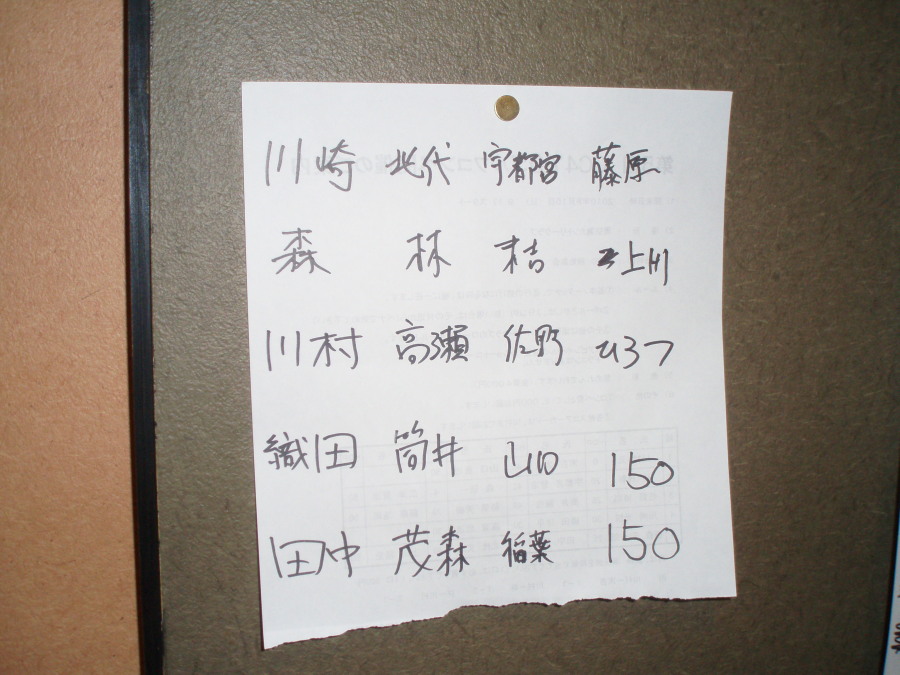 川崎 北代 宇都宮 藤原
森 林 桔 上川
川村 高瀬 佐野 ひろつ
織田 筒井 山口 150
田中 茂森 稲葉 150